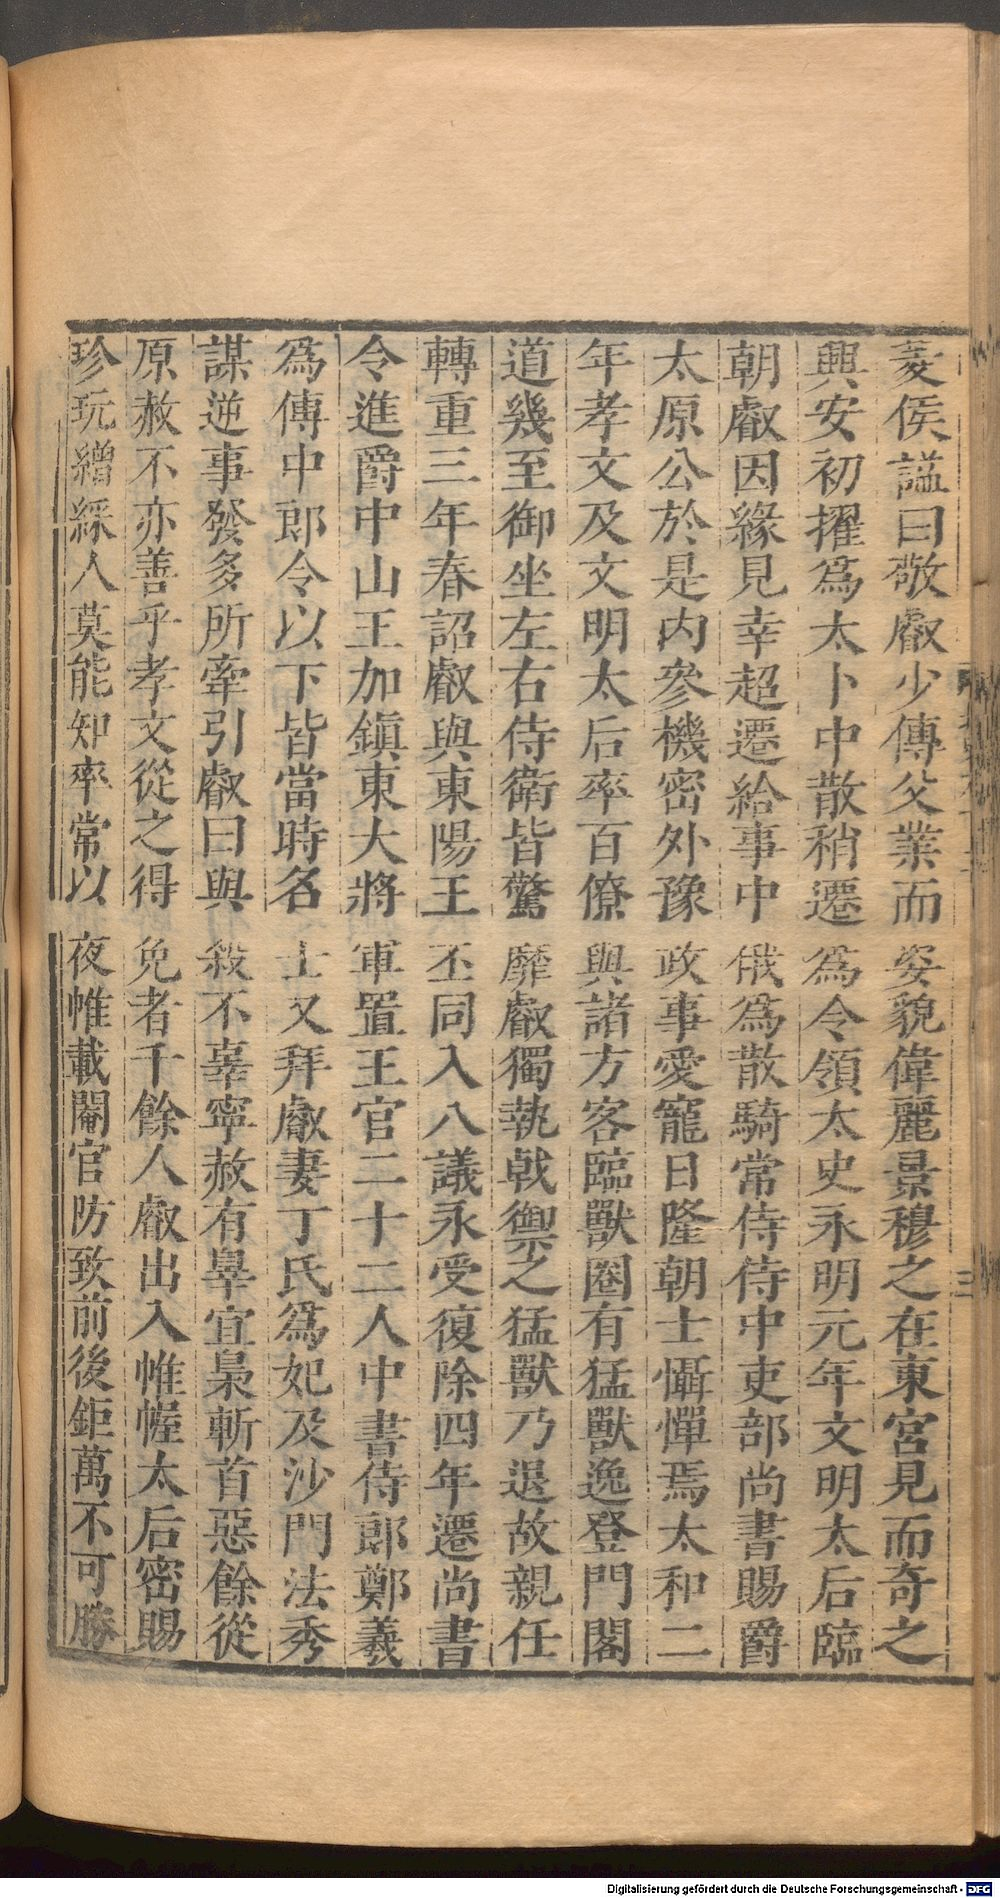 菱侯謚曰敬叡少傳父業而姿貌偉麗景穆之在東宮見而奇之
興安初擢為太卜中散稍遷為令領太史永明元年文明太后臨
朝叡因緣見幸超遷給事中俄為散騎常侍侍中吏部尚書賜爵
太原公於是內參機密外豫政事愛寵日隆朝士懾憚焉太和二
年孝文及文明太后率百僚與諸方客臨獸圈有猛獸逸登門閣
道幾至御坐左右侍衛皆驚靡叡獨執戟禦之猛獸乃退故親任
轉重三年春詔叡與東陽王丕同入八議永受復除四年遷尚書
令進爵中山王加鎮東大將軍置王官二十二人中書侍郎鄭羲
為傅中郎令以下皆當時名士又拜叡妻丁氏為妃及沙門法秀
謀逆事發多所牽引叡曰與殺不辜寧赦有辠宜梟斬首惡餘從
原赦不亦善乎孝文從之得免者千餘人叡出入帷幄太后密賜
珍玩繒綵人莫能知率常以夜帷載閹官防致前後鉅萬不可勝
三
Digitalisierung gefördert durch die Deutsche Forschungsgemeinschaft - DFG